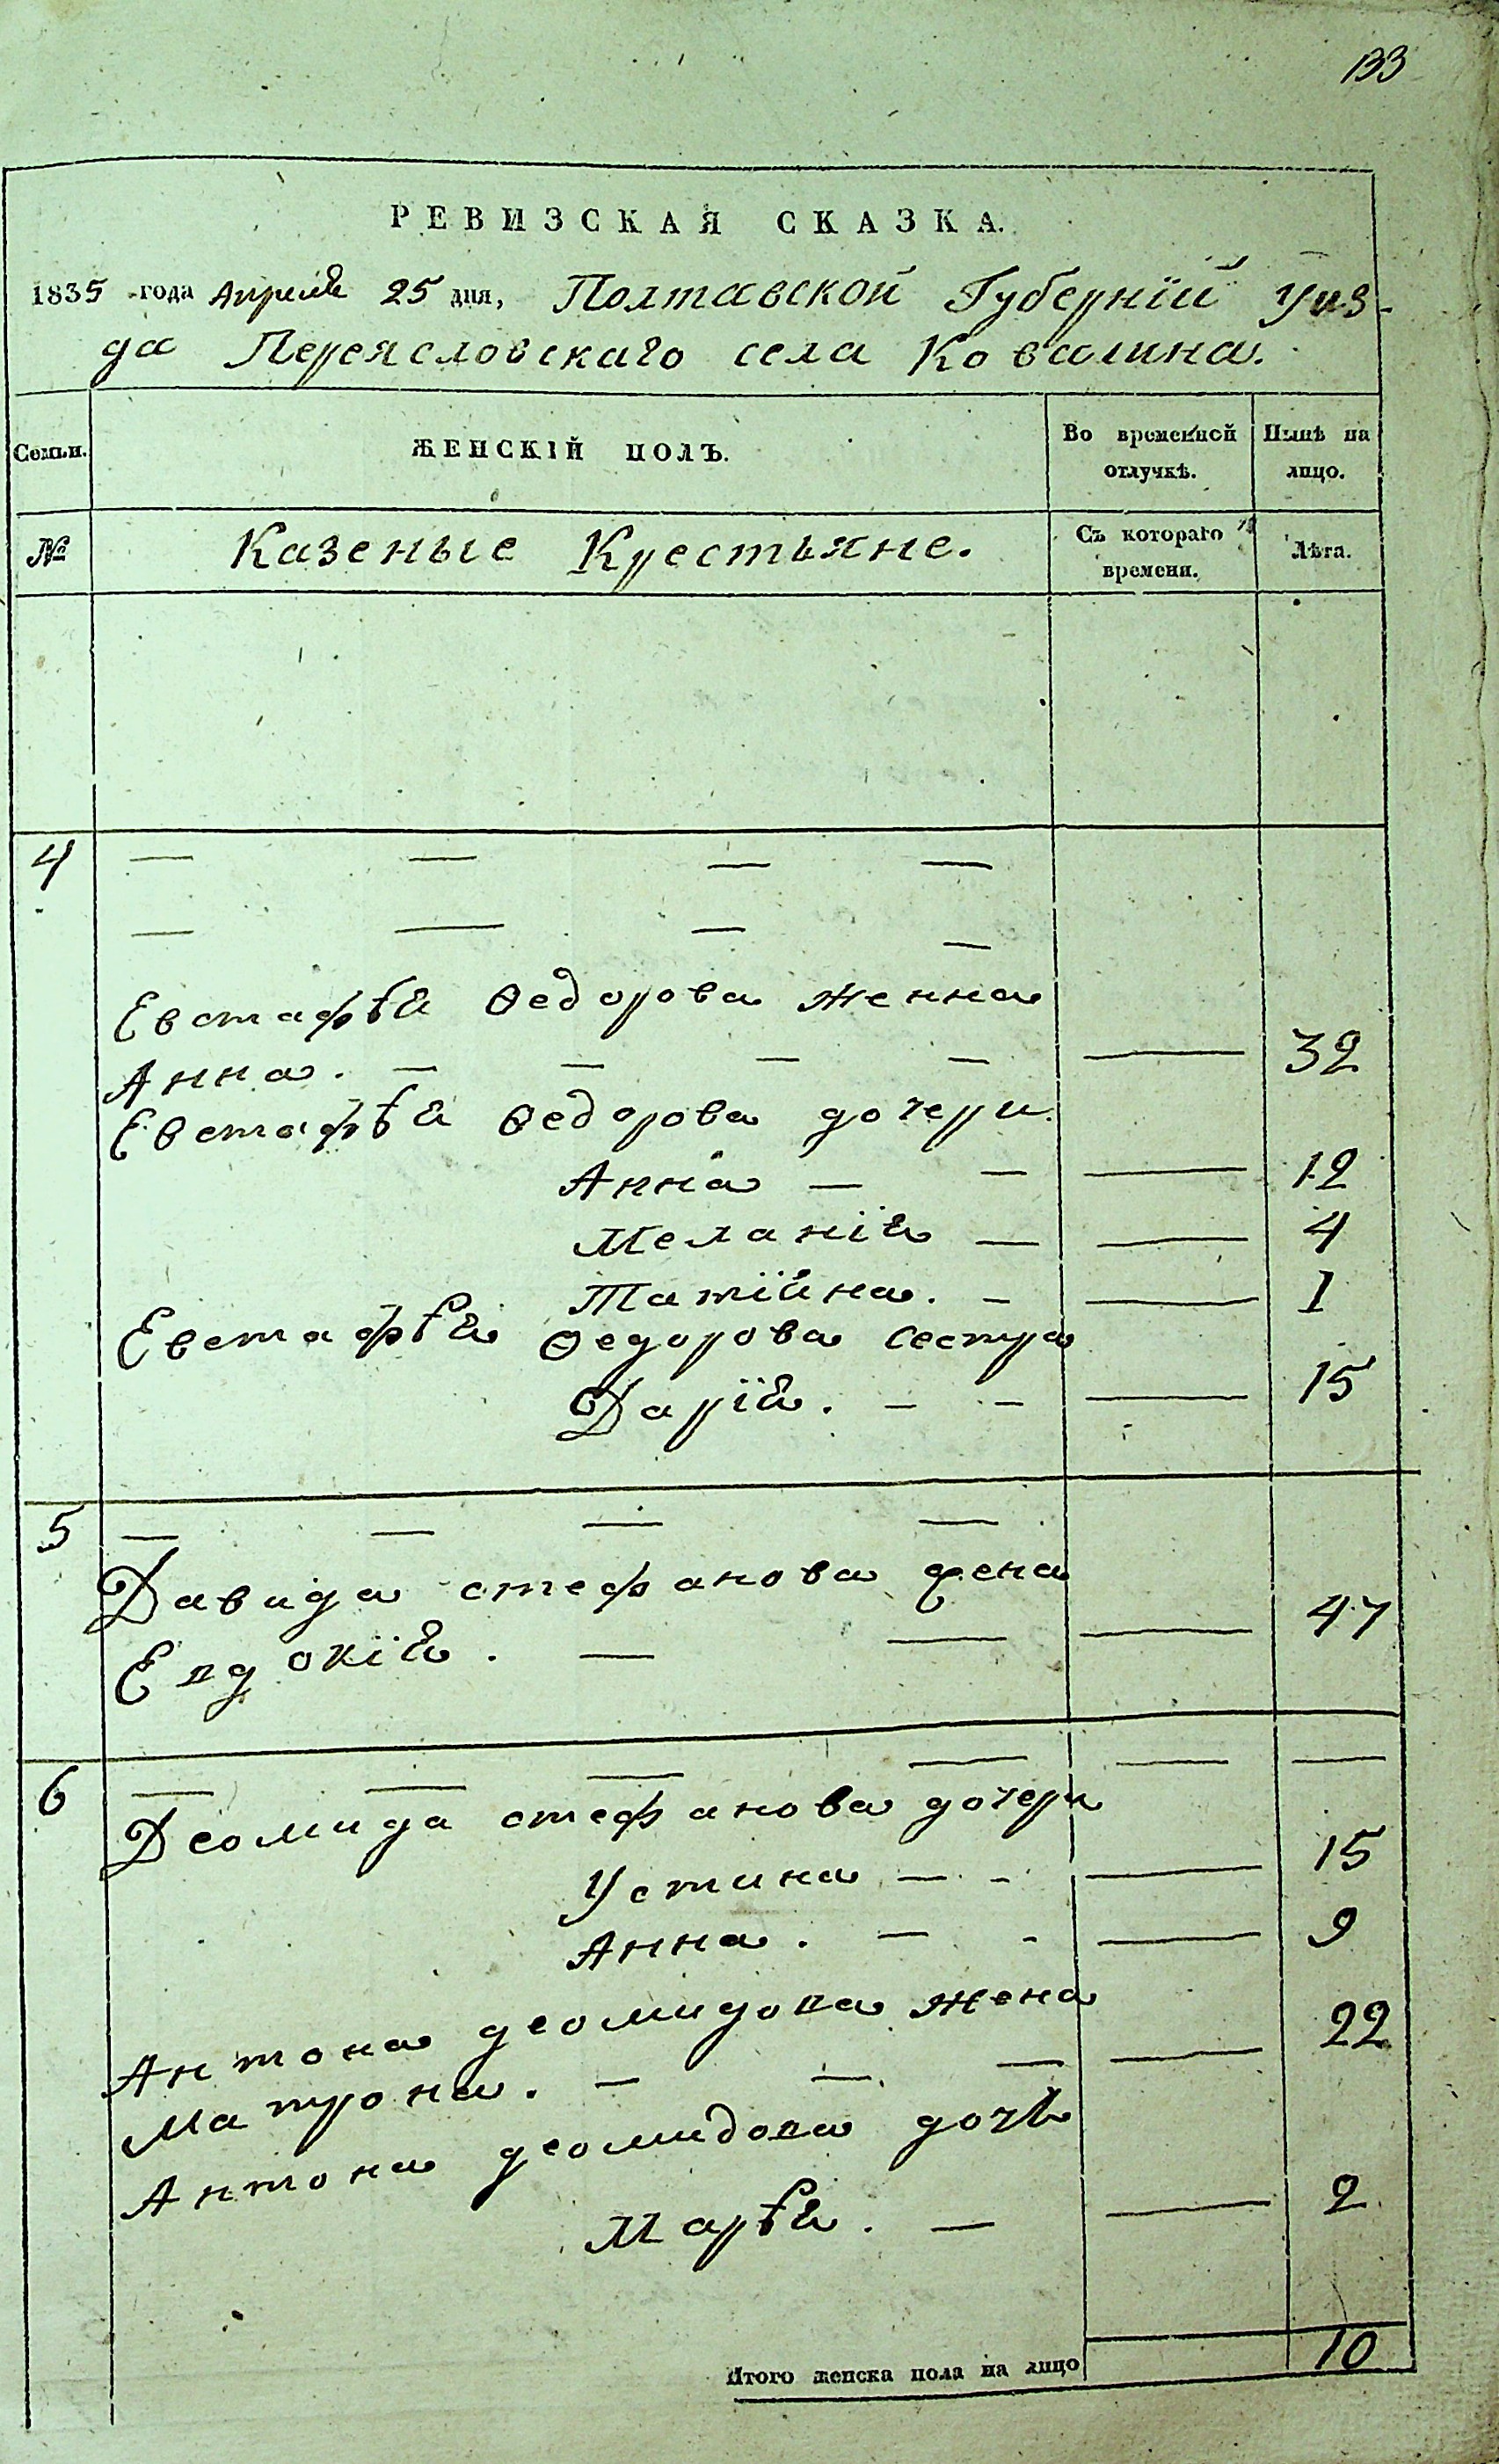 133
РЕВИЗСКАЯ СКАЗКА.
1835 года Апреля 25 дня, Полтавской Губернїй Уѣз-
да Переясловскаго села Ковалина.
Семьи. ЖЕНСКІЙ ПОЛЪ. Во временной отлучкѣ. Нынѣ на лицо.
№ Казеные Крестьяне. Съ котораго времени. Лѣта.
4 — — — —
— — — —
Евстафѣя Ѳедорова женна
Анна. — — — — — 32
Евстафѣя Ѳедорова дочери
Анна — — — 12
Меланїя — — 4
Татїяна. — — 1
Евстафѣя Ѳедорова сестра
Дарїя. — — — 15
5 — — — —
Давида стефанова жена
Евдокїя. — — — 47
6 — — — — — —
Деомида стефанова дочери
Устина — - — 15
Анна. — - — 9
Антона деомидова жена
Матрона. — — — — 22
Антона деомидова дочь
Марѣя. — — 2
Итого женска пола на лицо 10